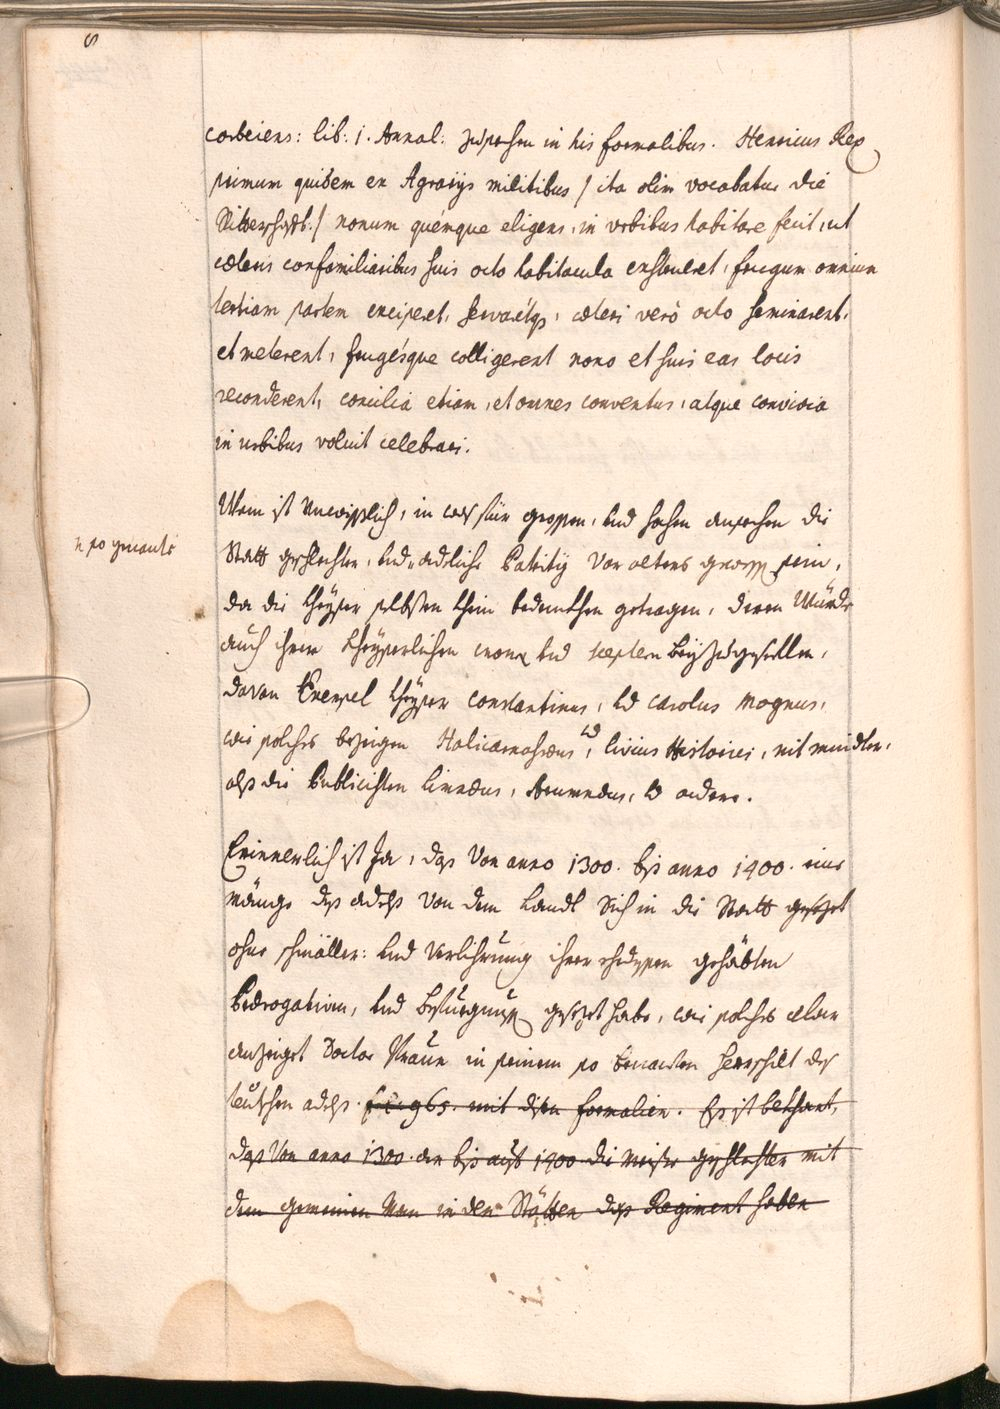 corbeiens: lib: 1. Annal: zusehen in his formalibus. Henricus Rex
primum quidem ex Agrarijs militibus / ita olim vocabatur die
Ritterschafft. / nonum quémque eligens, in urbibus habitare fecit, ut
cæteris confamiliaribus suis octo habitacula exstrueret, frugum omnium
tertiam partem exciperet, servarétqs, cæteri verò octo seminarent,
et meterent, frugésque colligerent nono et suis eas locis
reconderent, concilia etiam, et omnes conventus, atque convivia
in urbibus voluit celebrari.
Wem ist unwißlich, in was für grossen, und hohen ansehen die
Statt geschlechter, und adliche Patritij vor alters gewesen sein,
da die Kheyser selbsten khein bedenkhen getragen, deren Würde
auch ihrer Kheyserlichen cron und scepter beyzugesellen,
davon Exempel Kheyser constantinus, und carolus Magnus,
wie solches bezeigen Halicarnassæus, und livius Historici, nit minder,
alß die Publicisten Limnæus, und andere.
Erinnerlich ist Ja, das von anno 1300. biß anno 1400. eine
mänge deß adelß von dem Landt sich in die Statt gesetzet
ohne schmäller: und verliehrung ihrer gehäbten
Prærogativen, und gesetzet habe, wie solches clar
anzeiget Doctor Praun in seinem so Heerschilt des
teutschen adelß. 965. mit disen formalien. Es ist bekhant,
daß von anno 1300. an biß auf 1400 die meiste geschlechter mit
dem gemeinen Man in den Stätten daß Regiment haben